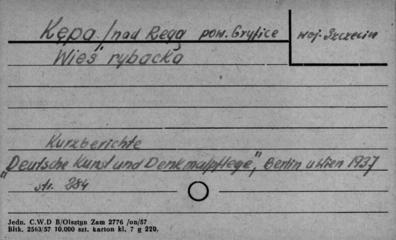 Kępa /nad Regą pow. Gryfice woj. Szczecin
Wieś rybacka
Kurzberichte
"Deutsche Kunst und Denkmalpflege", Berlin u Wien 1937
str. 284
Jedn. C.W.D B/Olsztyn Zam 2776 /on/57
Bltk. 2563/57 10.000 szt. karton kl. 7 g 220.